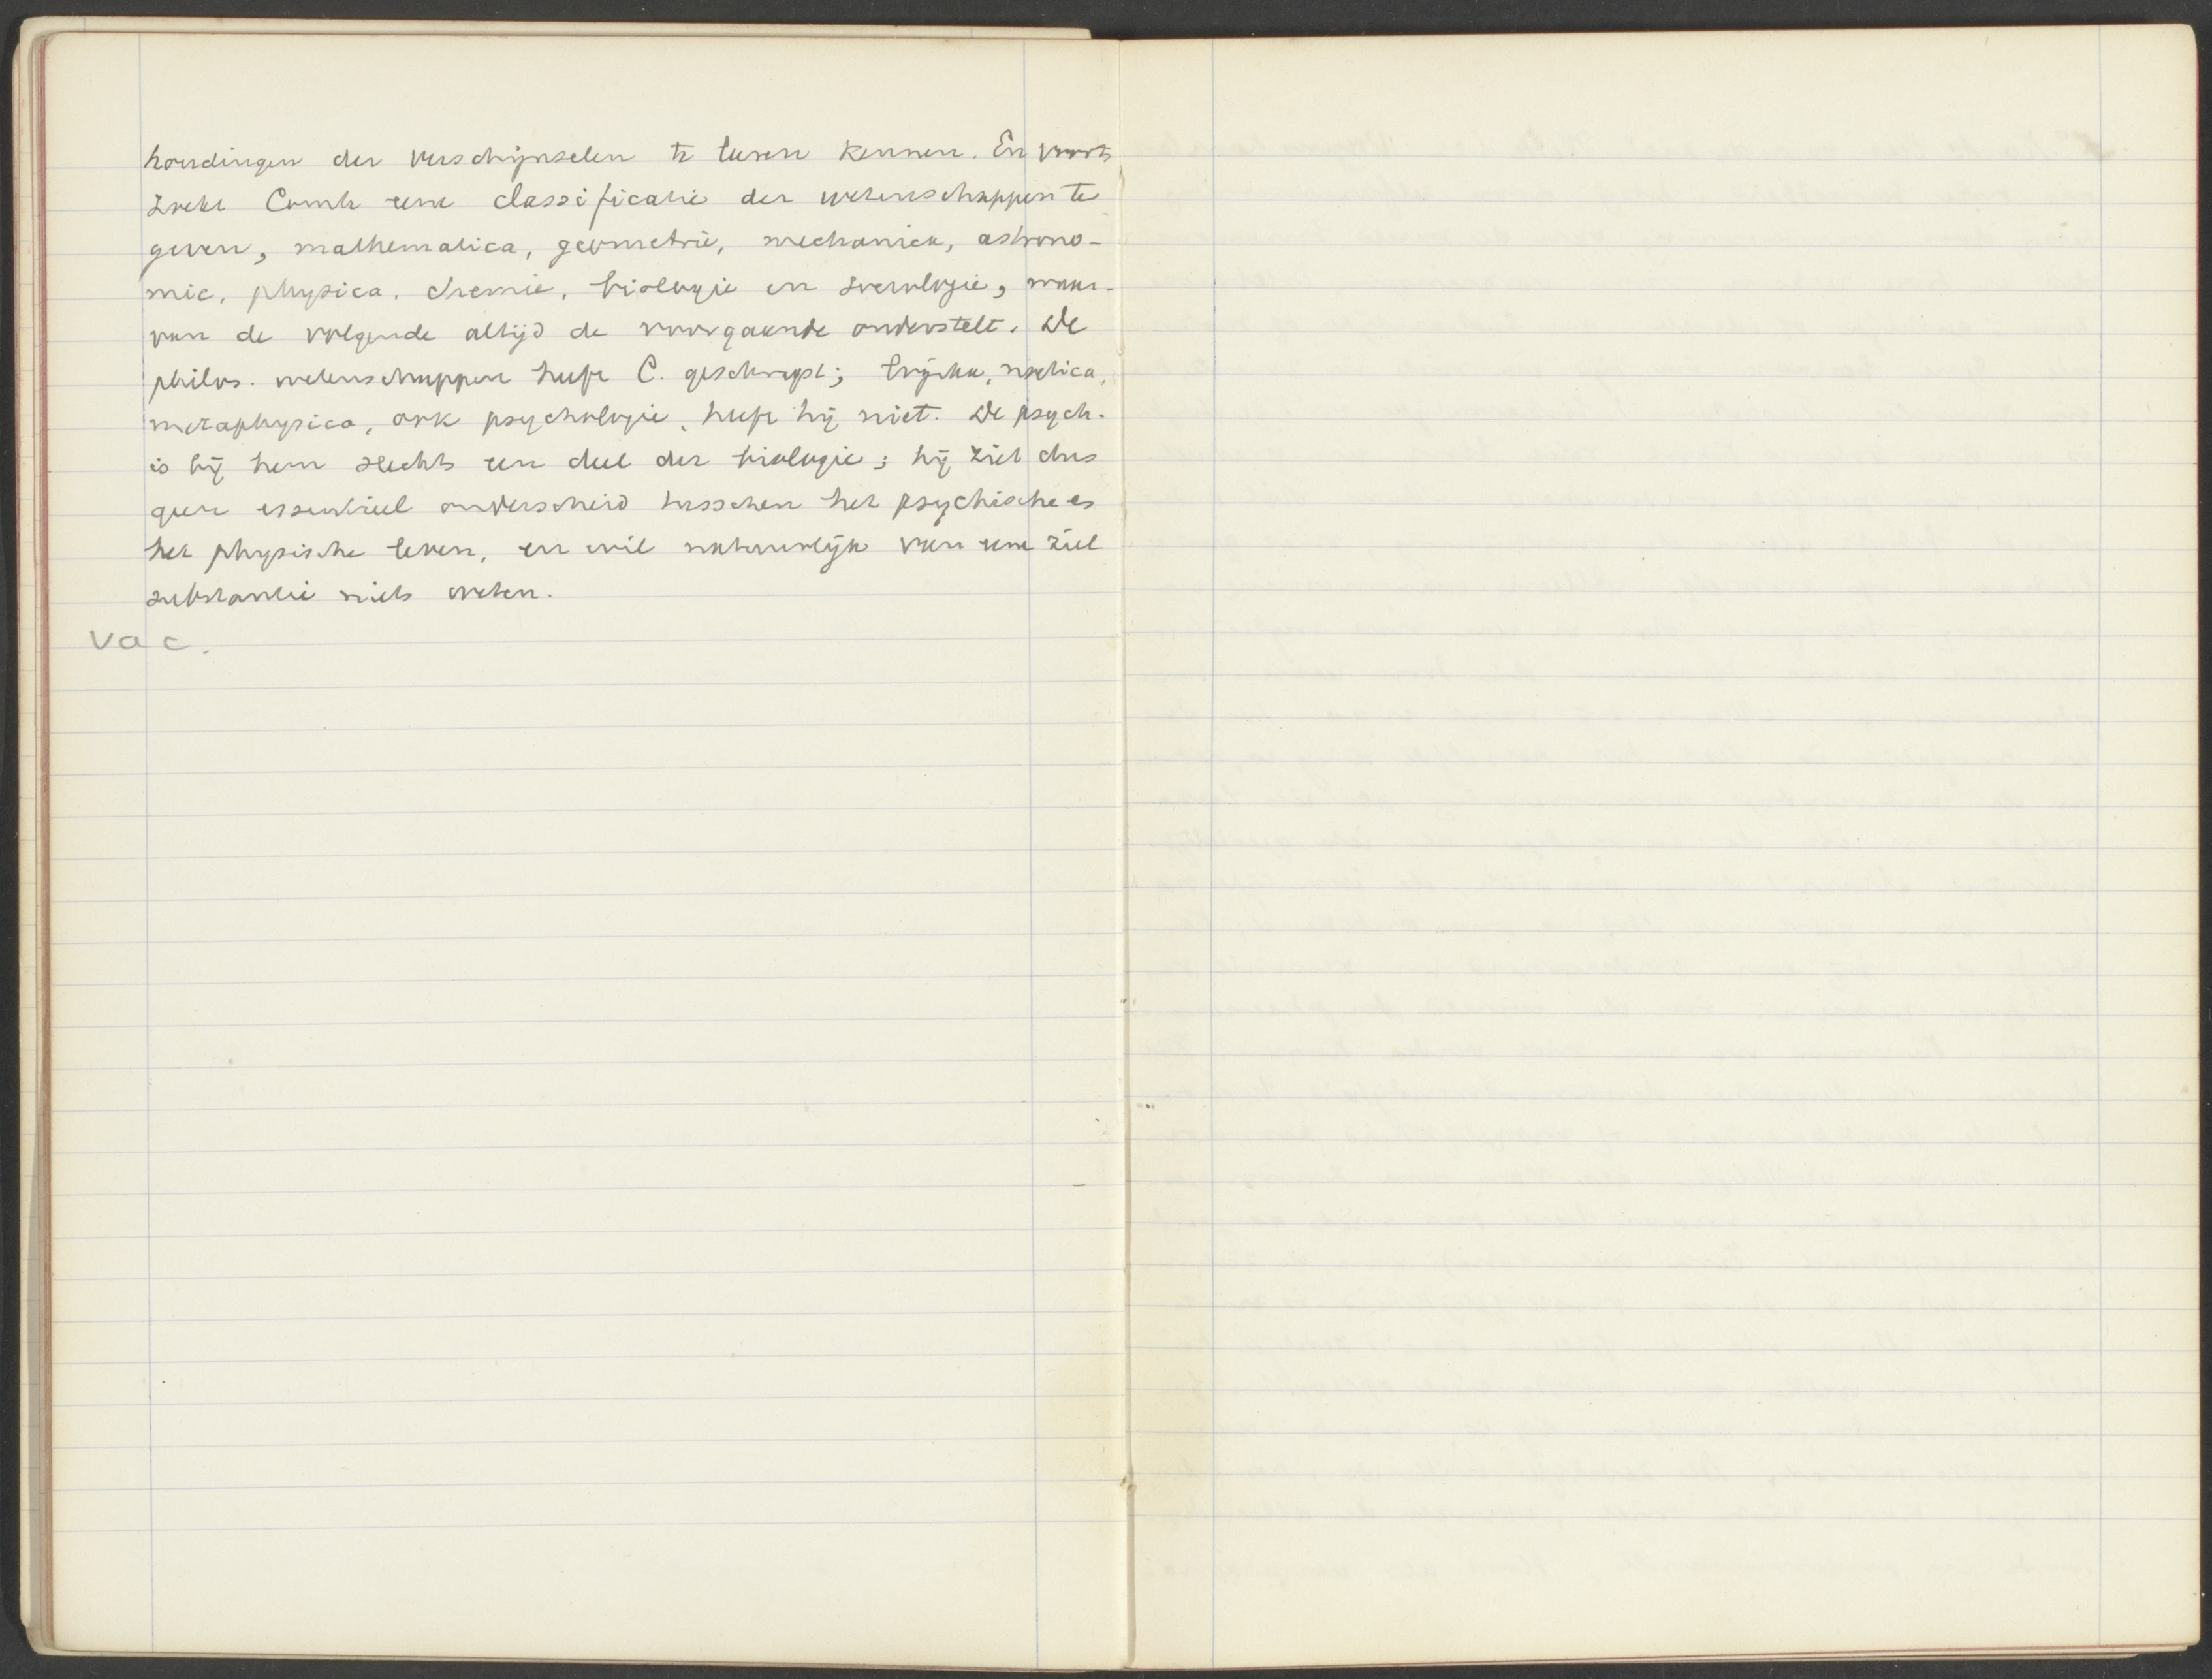 houdingen der verschijnselen te leeren kennen. En voorts
zoekt Comte eene classificatie der wetenschappen te
geven, mathematica, geometrie, mechaniek, astrono-
mie, physica, chemie, biologie en sociologie, waar-
van de volgende altijd de voorgaande onderstelt. De
philos. wetenschappen heeft C. geschrapt;
metaphysica, ook psychologie, heeft hij niet. De psych.
is bij hem slechts een deel der biologie; hij ziet dus
geen essentieel onderscheid tusschen het psychische en
het physische leven, en wil natuurlijk van eene ziel
substantie niets weten.
vac.